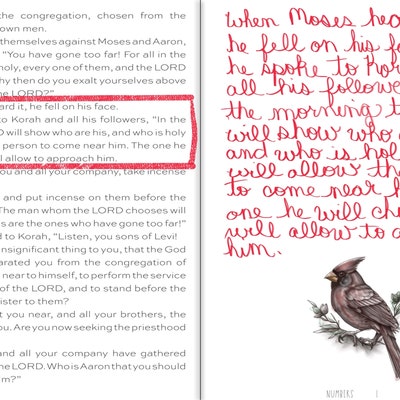 the congregation, chosen from the
own men.
themselves against Moses and Aaron,
"You have gone too far! For all in the
holy, every one of them, and the LORD
hy then do you exalt yourselves above
e LORD?"
ard it, he fell on his face.
to Korah and all his followers, "In the
D will show who are his, and who is holy
person to come near him. The one he
l allow to approach him.
you and all your company, take incense
and put incense on them before the
The man whom the LORD chooses will
s are the ones who have gone too far!"
d to Korah, "Listen, you sons of Levi!
nsignificant thing to you, that the God
arated you from the congregation of
near to himself, to perform the service
of the LORD, and to stand before the
ister to them?
t you near, and all your brothers, the
ou. Are you now seeking the priesthood
and all your company have gathered
he LORD. Who is Aaron that you should
m?"
when Moses hea
he fell on his fa
he spoke to Kor
all his followe
the morning t
will show who a
and who is hol
will allow th
to come near h
one he will ch
will allow to a
him.
NUMBERS |